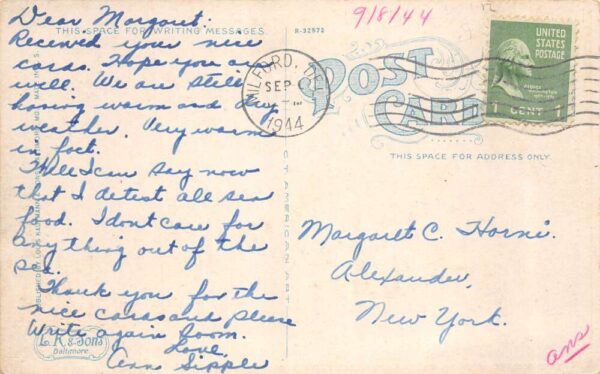 Dear Margaret:
THIS SPACE FOR WRITING MESSAGES
Received your nice
cards. Hope you are
well. We are still
having warm and dry
weather. Very warm
in fact.
Well I can say now
that I detest all sea
food. I dont care for
anything out of the
sea.
Thank you for the
nice cards and please
Write again soon.
Love,
Ann Sipple
L. K. & Sons
Baltimore
R-32572
9/8/44
MILFORD, DEL.
SEP
1944
POST
CARD
THIS SPACE FOR ADDRESS ONLY
UNITED
STATES
POSTAGE
1 CENT 1
Margaret C. Horni.
Alexander,
New York.
ans